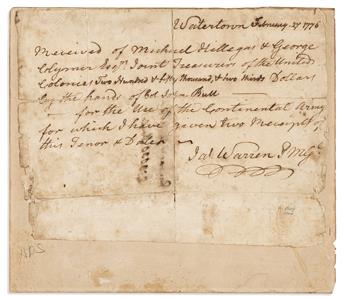 Watertown February 27 1776
Received of Michael Hillegas & George
Clymer Esqrs Joint Treasurers of the United
Colonies, Two Hundred & fifty thousand, & two thirds Dollars
by the hands of Col John Bull
for the Use of the Continental Army
for which I have given two Receipts,
this Tenor & Date
Jas Warren P Mgl
ADS